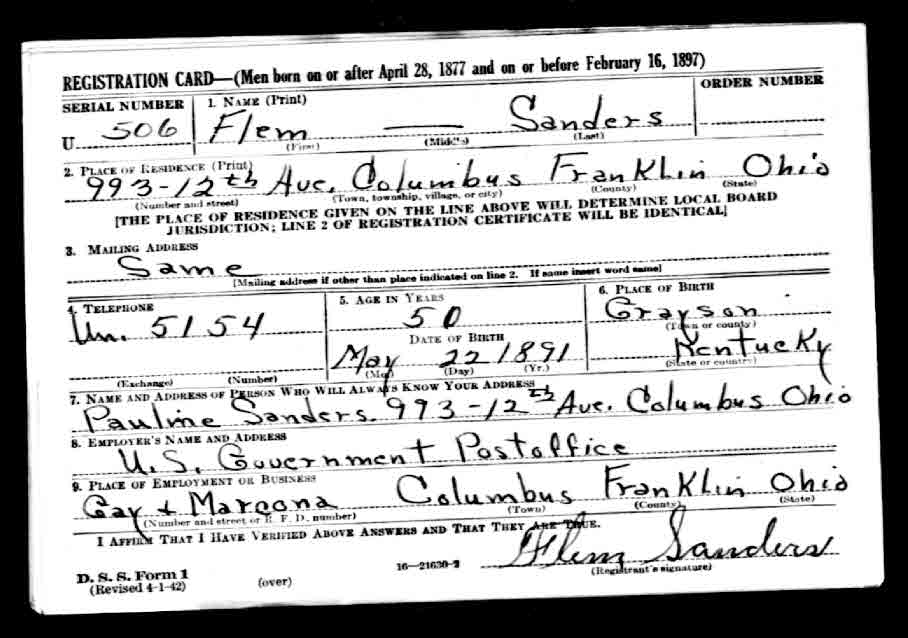 REGISTRATION CARD—(Men born on or after April 28, 1877 and on or before February 16, 1897)
SERIAL NUMBER 1. NAME (Print) ORDER NUMBER
U 506 Flem —— Sanders
(First) (Middle) (Last)
2. PLACE OF RESIDENCE (Print)
993-12th Ave. Columbus Franklin Ohio
(Number and street) (Town, township, village, or city) (County) (State)
[THE PLACE OF RESIDENCE GIVEN ON THE LINE ABOVE WILL DETERMINE LOCAL BOARD
JURISDICTION; LINE 2 OF REGISTRATION CERTIFICATE WILL BE IDENTICAL]
3. MAILING ADDRESS
Same
[Mailing address if other than place indicated on line 2. If same insert word same]
4. TELEPHONE 5. AGE IN YEARS 6. PLACE OF BIRTH
Un. 5154 50 Grayson
DATE OF BIRTH (Town or county)
May 22 1891 Kentucky
(Exchange) (Number) (Mo.) (Day) (Yr.) (State or country)
7. NAME AND ADDRESS OF PERSON WHO WILL ALWAYS KNOW YOUR ADDRESS
Pauline Sanders. 993-12th Ave. Columbus Ohio
8. EMPLOYER'S NAME AND ADDRESS
U.S. Government Postoffice
9. PLACE OF EMPLOYMENT OR BUSINESS
Gay + Marcona Columbus Franklin Ohio
(Number and street or R. F. D. number) (Town) (County) (State)
I AFFIRM THAT I HAVE VERIFIED ABOVE ANSWERS AND THAT THEY ARE TRUE.
Flem Sanders
D. S. S. Form 1 16—21630-2 (Registrant's signature)
(Revised 4-1-42) (over)